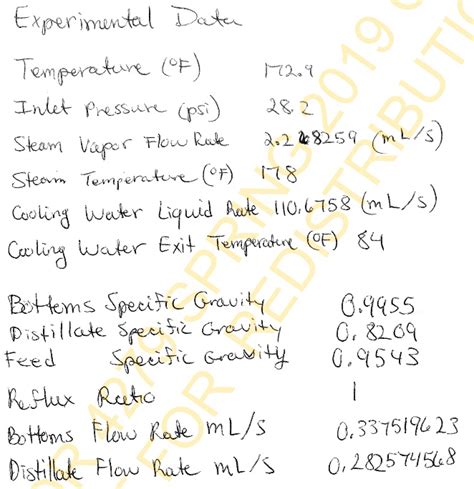 Experimental Data
Temperature (°F) 172.9
Inlet Pressure (psi) 28.2
Steam Vapor Flow Rate 2.268259 (mL/s)
Steam Temperature (°F) 178
Cooling Water Liquid Rate 110.6758 (mL/s)
Cooling Water Exit Temperature (°F) 84
Bottoms Specific Gravity 0.9955
Distillate Specific Gravity 0.8209
Feed Specific Gravity 0.9543
Reflux Ratio 1
Bottoms Flow Rate mL/s 0.337519623
Distillate Flow Rate mL/s 0.282574568
4279 SPRING 2019
FOR REDISTRIBUTIO